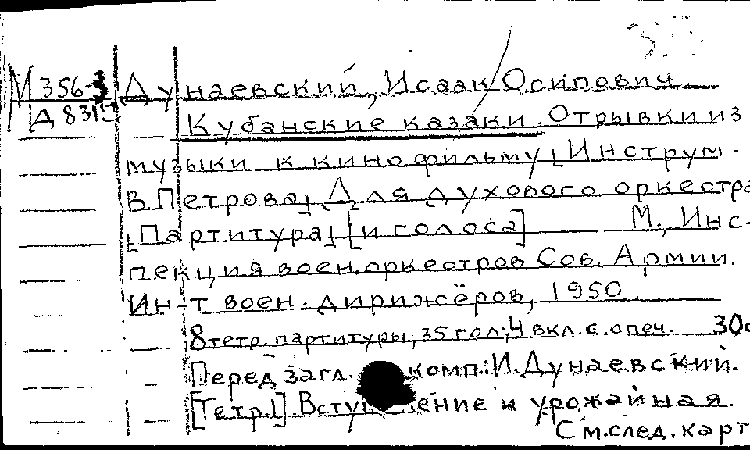 М 356-3 Дунаевский, Исаак Осипович
Д 831 Кубанские казаки. Отрывки из
музыки к кинофильму, Инструм.
В. Петрова, Для духового оркестра
[Партитура] [и голоса] М., Инс-
пекция воен. оркестров Сов. Армии.
Ин-т воен. дирижёров, 1950
8 тетр. партитуры, 35 гол; 4 вкл. с. опеч. 30
Перед загл. комп: И. Дунаевский.
[Тетр.1] Вступление и урожайная.
См. след. карт